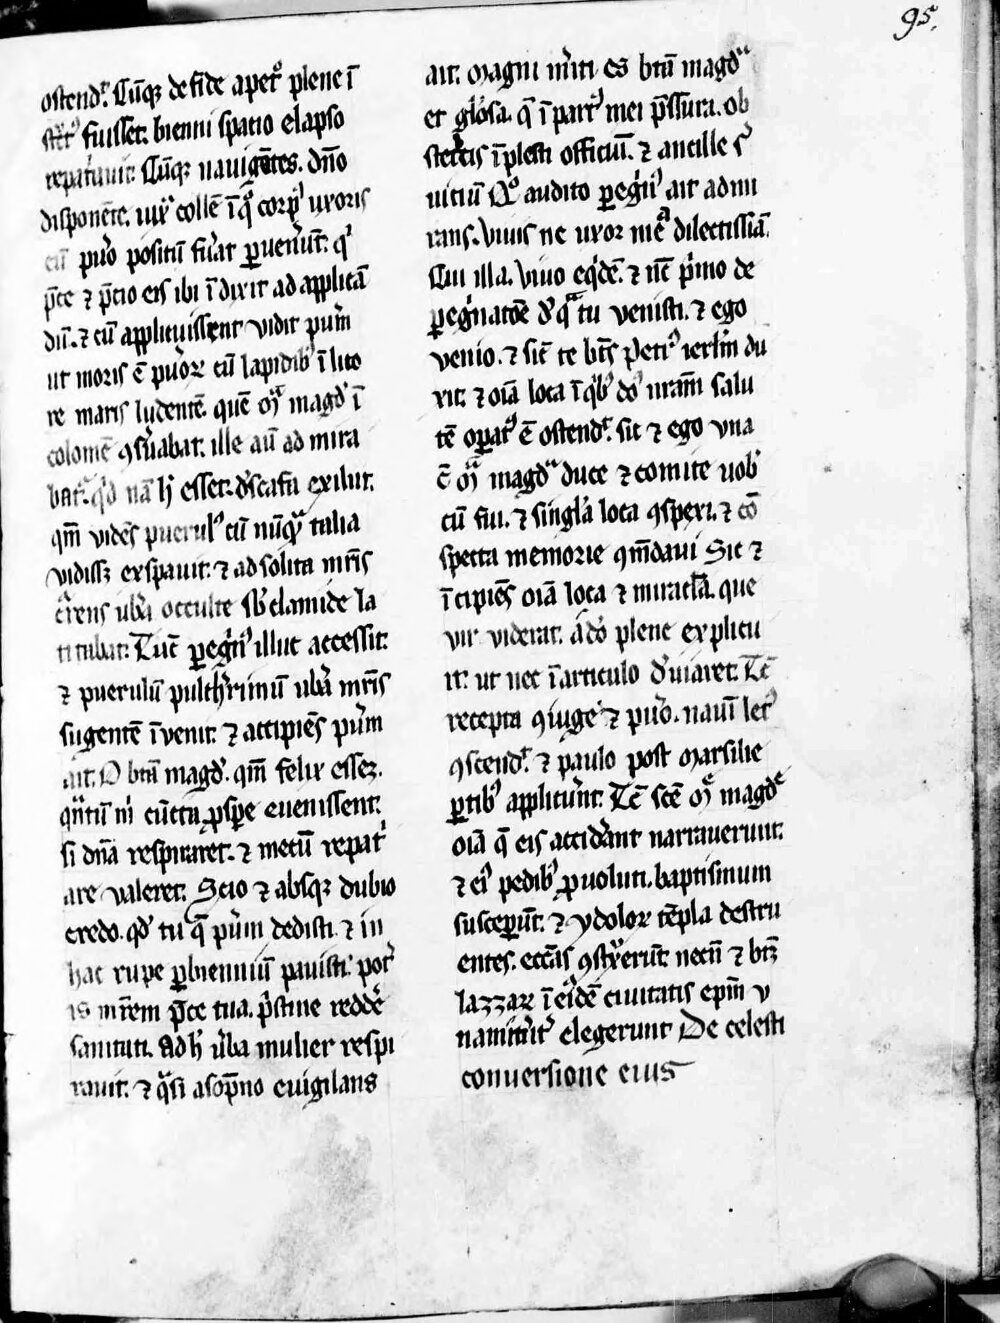 95.
ostend͛t. Cūqꝫ de fide a pet͛o plene ī
st͛ct͛ fuisset. bienni spatio elapso
repat͛auit. Cūqꝫ nauigātes. dn̄o
disponēte. iuxͣ collē ī qͦ corp͛ uxoris
cū pu͛o positū fu͛at ꝑuen͛ūt. q͛
p̄ce ⁊ p̄cio eis ibi īdixit ad applicā
dū. ⁊ cū applicuissent vidit pu͛m
ut moris ē pu͛oꝝ cū lapidibꝫ ī lito
re maris ludentē. quē Mͣ magd͛ ī
colomē ꝯs͛uabat. ille aū ad mira
bat͛. qͥd nā h͛ esset. d͛ scafa exiluit.
qm̄ vidēs puerul͛ cū nūqͣ talia
vidissꝫ expauit. ⁊ ad solita mr̄is
cͬrens ub͛a occulte sb͛ clamide la
titabat. Tūc pegͥn͛ illuc accessit.
⁊ puerulū pulch͛rimū ub͛a mr̄is
sugentē īuenit. ⁊ accipiēs pu͛m
ait. O btā magd͛. qm̄ felix essēꝫ.
qn̄tū m͛ cūcta ꝓspe euenissent.
si dn̄a respiraret. ⁊ mecū repat͛
are valeret. Scio ⁊ absqꝫ dubio
credo. qd͛ tu q̄ pu͛m dedisti. ⁊ in
hac rupe ꝑ bienniū pauisti. pot͛
is mr̄em p̄ce tua. p̄stine redde͛
sanitati. Ad h͛ u͛ba mulier respi
rauit. ⁊ qͣsi a sopn̄o euigilans
ait. Magni m͛iti es btā magdͣ
et gl͛osa. q̄ ī part͛ mei p̄ssura. ob
stet͛cis īplesti officiū. ⁊ ancille s͛
uitiū Qͦ audito pegͥn͛ ait admi
rans. Viuis ne uxor meͣ dilectissīa.
Cui illa. Viuo eqͥdē. ⁊ nūc pͥmo de
pegͥnatōe d͛ qͣ tu venisti. ⁊ ego
venio. ⁊ sic̄ te bt̄s pet͛ ierl̄m du
xit. ⁊ oīa loca ī qͥbꝫ d͛o nr̄am salu
tē opat͛ ē ostend͛t. sic ⁊ ego vna
c̄ Mͣ magdͣ duce ⁊ comite uob͛
cū fui. ⁊ singl͛a loca ꝯspexi. ⁊ cō
specta memorie ꝯmdaui Sic ⁊
īcipiēs oīa loca ⁊ miracl̄a. que
vir viderat. ad͛o plene explicu
it. ut nec ī articulo d͛uiaret. Tc̄
recepta ꝯiuge ⁊ pu͛o. nauī let͛
ꝯscend͛t. ⁊ paulo post Marsilie
ꝑtibꝫ applicu͛nt. Tc̄ sc̄e Mͤ magdͤ
oīa q̄ eis accid͛ant narrauerunt.
⁊ ei͛ pedibꝫ ꝓuoluti. baptismum
susceꝑūt. ⁊ ydoloꝝ tēpla destru
entes. ecc̄as ꝯstͮxerūt nec̄n ⁊ btꝫ
lazzaꝝ ī eͣdē ciuitatis ep̄m v
namit͛ elegerunt De celesti
conuersione eius